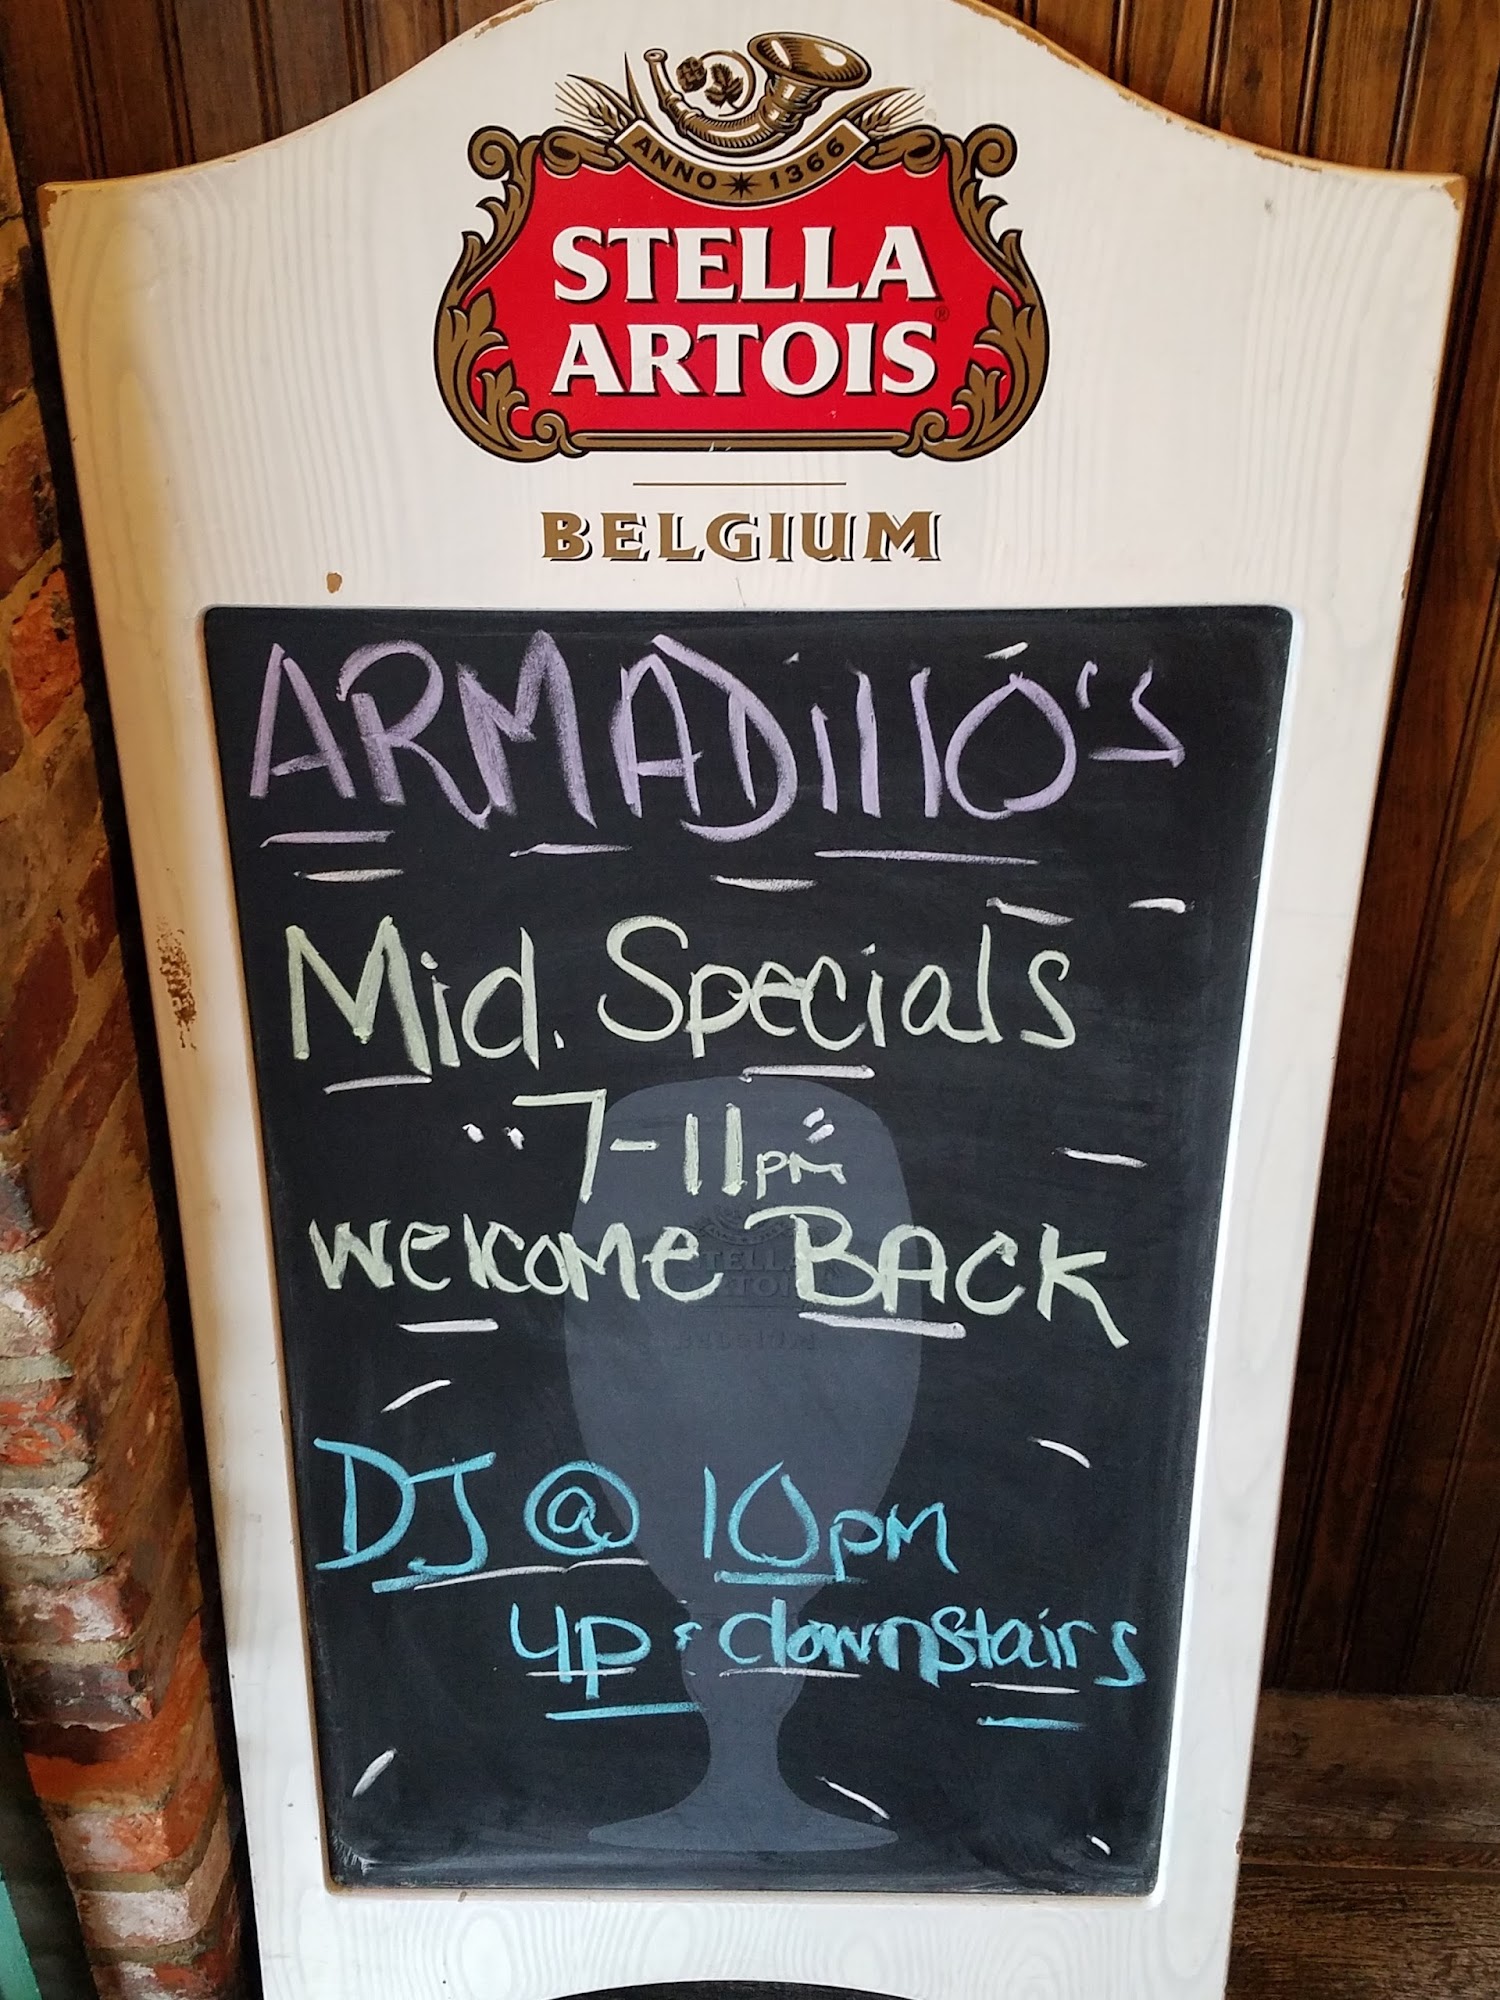 ANNO ★ 1366
STELLA
ARTOIS®
BELGIUM
ARMADillO's
Mid. Specials
7-11pm
welcome BACK
STELLA
ARTOIS
BELGIUM
DJ @ 10pm
up & downstairs